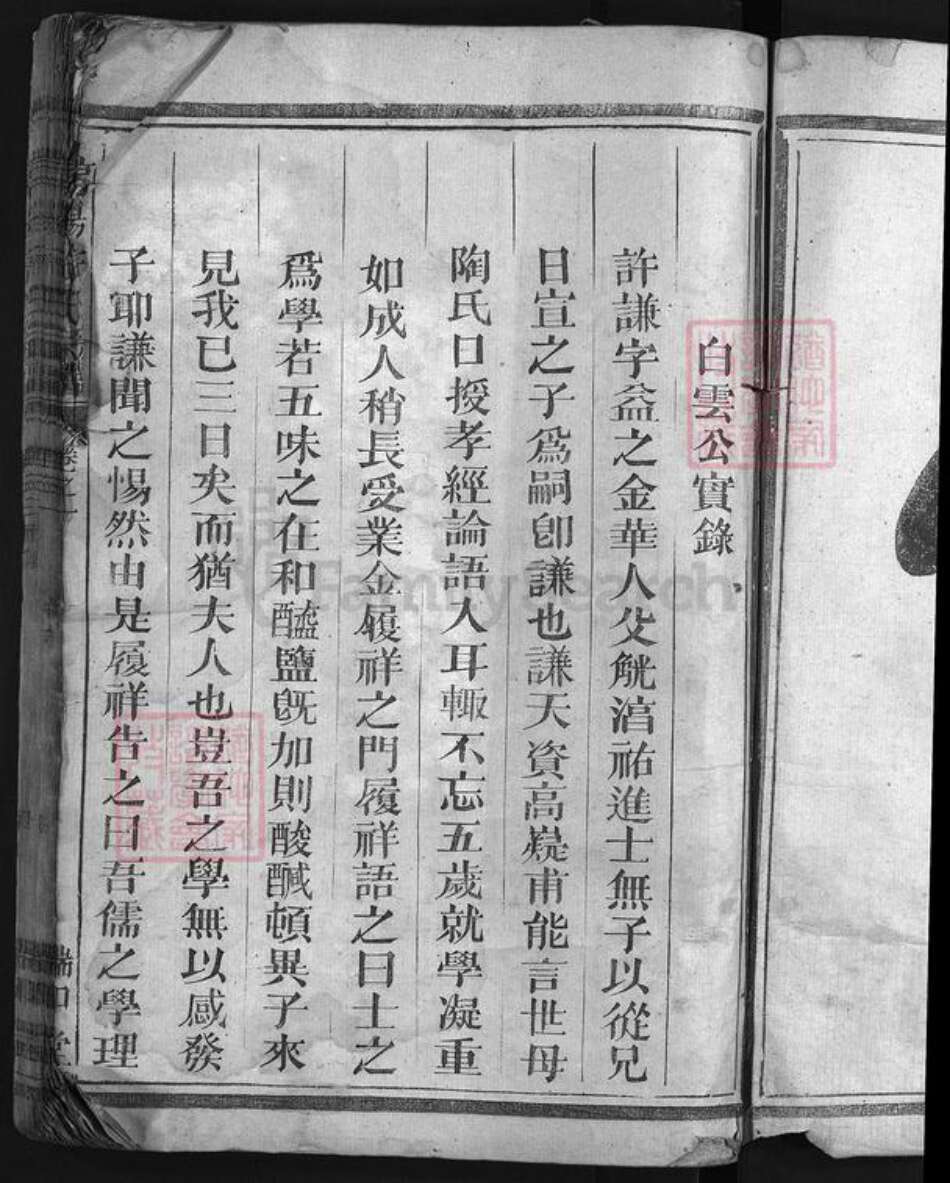 白雲公實錄
許謙字益之金華人父觥淯祐進士無子以從兄
日宣之子爲嗣卽謙也謙天資高嶷甫能言世母
陶氏口授孝經論語入耳輙不忘五歲就學凝重
如成人稍長受業金履祥之門履祥語之曰士之
爲學若五味之在和醯鹽旣加則酸醎頓異子來
見我已三日矣而猶夫人也豈吾之學無以感發
子耶謙聞之惕然由是履祥告之曰吾儒之學理
卷之一
FamilySearch